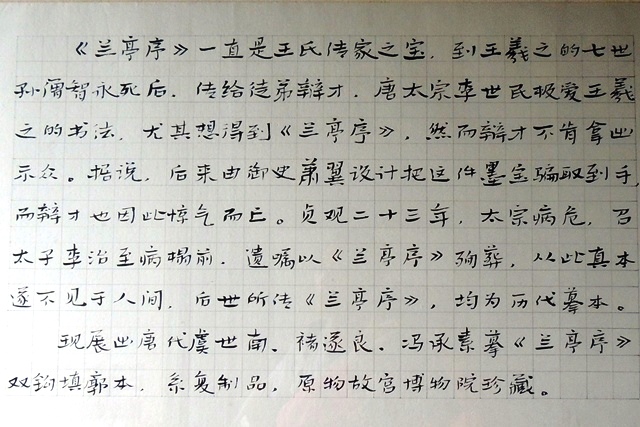 《兰亭序》一直是王氏传家之宝，到王羲之的七世
孙僧智永死后，传给徒弟辩才，唐太宗李世民极爱王羲
之的书法，尤其想得到《兰亭序》，然而辩才不肯拿出
示众。据说，后来由御史萧翼设计把这件墨宝骗取到手，
而辩才也因此惊气而亡。贞观二十三年，太宗病危，召
太子李治至病榻前，遗嘱以《兰亭序》殉葬，从此真本
遂不见于人间，后世所传《兰亭序》，均为历代摹本。
现展出唐代虞世南、褚遂良、冯承素摹《兰亭序》
双钩填廓本，系复制品，原物故宫博物院珍藏。